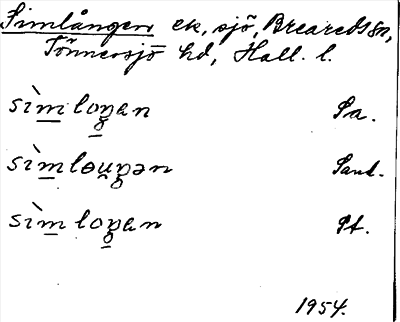 Simlången ek, sjö, Breareds sn,
Tönnersjö hd, Hall. l.
sìm̲loŋ̲an Sa.
sìm̲lɵu̲ŋən Sand.
sìm̲loŋ̲an St.
1954.